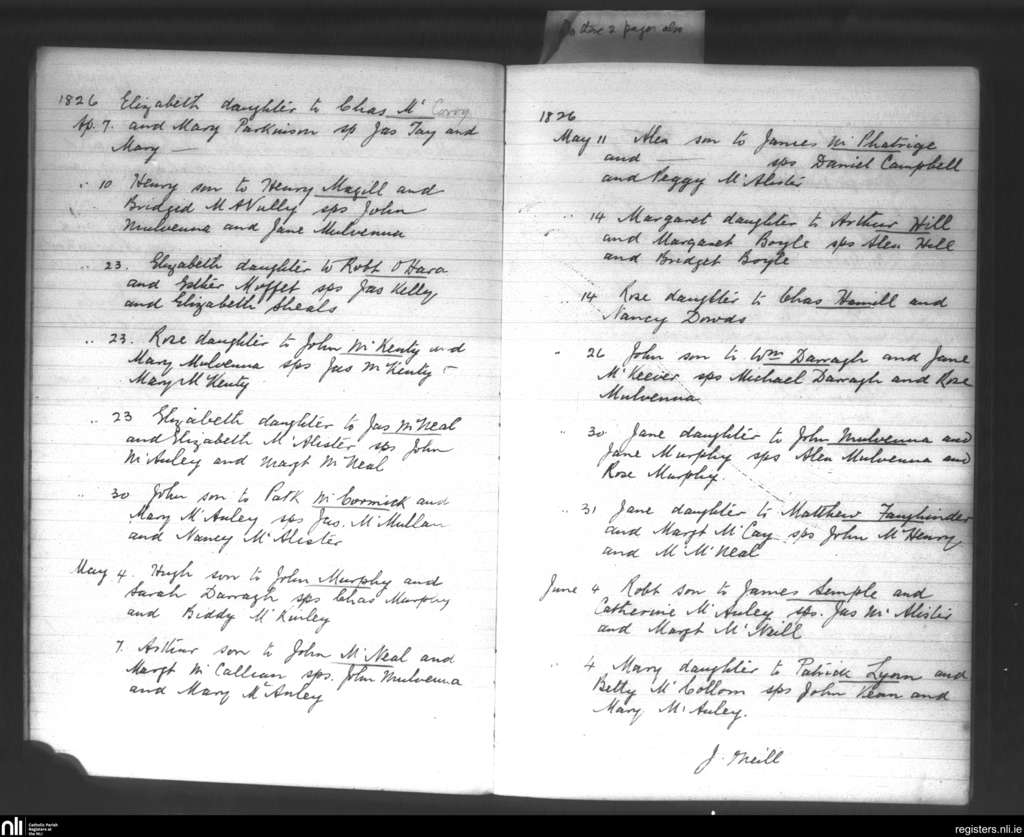 Do these 2 pages also
1826 Elizabeth daughter to Chas Mc Corry
Ap. 7. and Mary Parkinson sp Jas Tay and
Mary —
" 10 Henry son to Henry Magill and
Bridged McAVully sps John
Mulvenna and Jane Mulvenna
" 23. Elizabeth daughter to Robt O'Hara
and Esther Moffet sps Jas Kelly
and Elizabeth Sheals
" 23. Rose daughter to John McKenty and
Mary Mulvenna sps Jas McKenty –
Mary McKenty
" 23 Elizabeth daughter to Jas McNeal
and Elizabeth McAlister sps John
McAuley and Margt McNeal
" 30 John son to Patk McCormick and
Mary McAuley sps Jas. McMullan
and Nancy McAlister
May 4. Hugh son to John Murphy and
Sarah Darragh sps Chas Murphy
and Biddy McKinley
7. Arthur son to John McNeal and
Margt McCallian sps. John Mulvenna
and Mary McAuley
1826
May 11 Alex son to James McPhatrige
and — sps Daniel Campbell
and Peggy McAlister
" 14 Margaret daughter to Arthur Hill
and Margaret Boyle sps Alex Hill
and Bridget Boyle
" 14 Rose daughter to Chas Hamill and
Nancy Dowds
" 26 John son to Wm Darragh and Jane
McKeever sps Michael Darragh and Rose
Mulvenna
" 30 Jane daughter to John Mulvenna and
Jane Murphy sps Alex Mulvenna and
Rose Murphy.
" 31 Jane daughter to Matthew Faughinder
and Margt McCay sps John McHenry
and M. McNeal
June 4 Robt son to James Semple and
Catherine McAuley sps. Jas McAlister
and Margt McNeill
" 4 Mary daughter to Patrick Lyonn and
Betty McCollom sps John Kean and
Mary McAuley.
J. Neill
nli Catholic Parish
Registers at
the NLI
registers.nli.ie